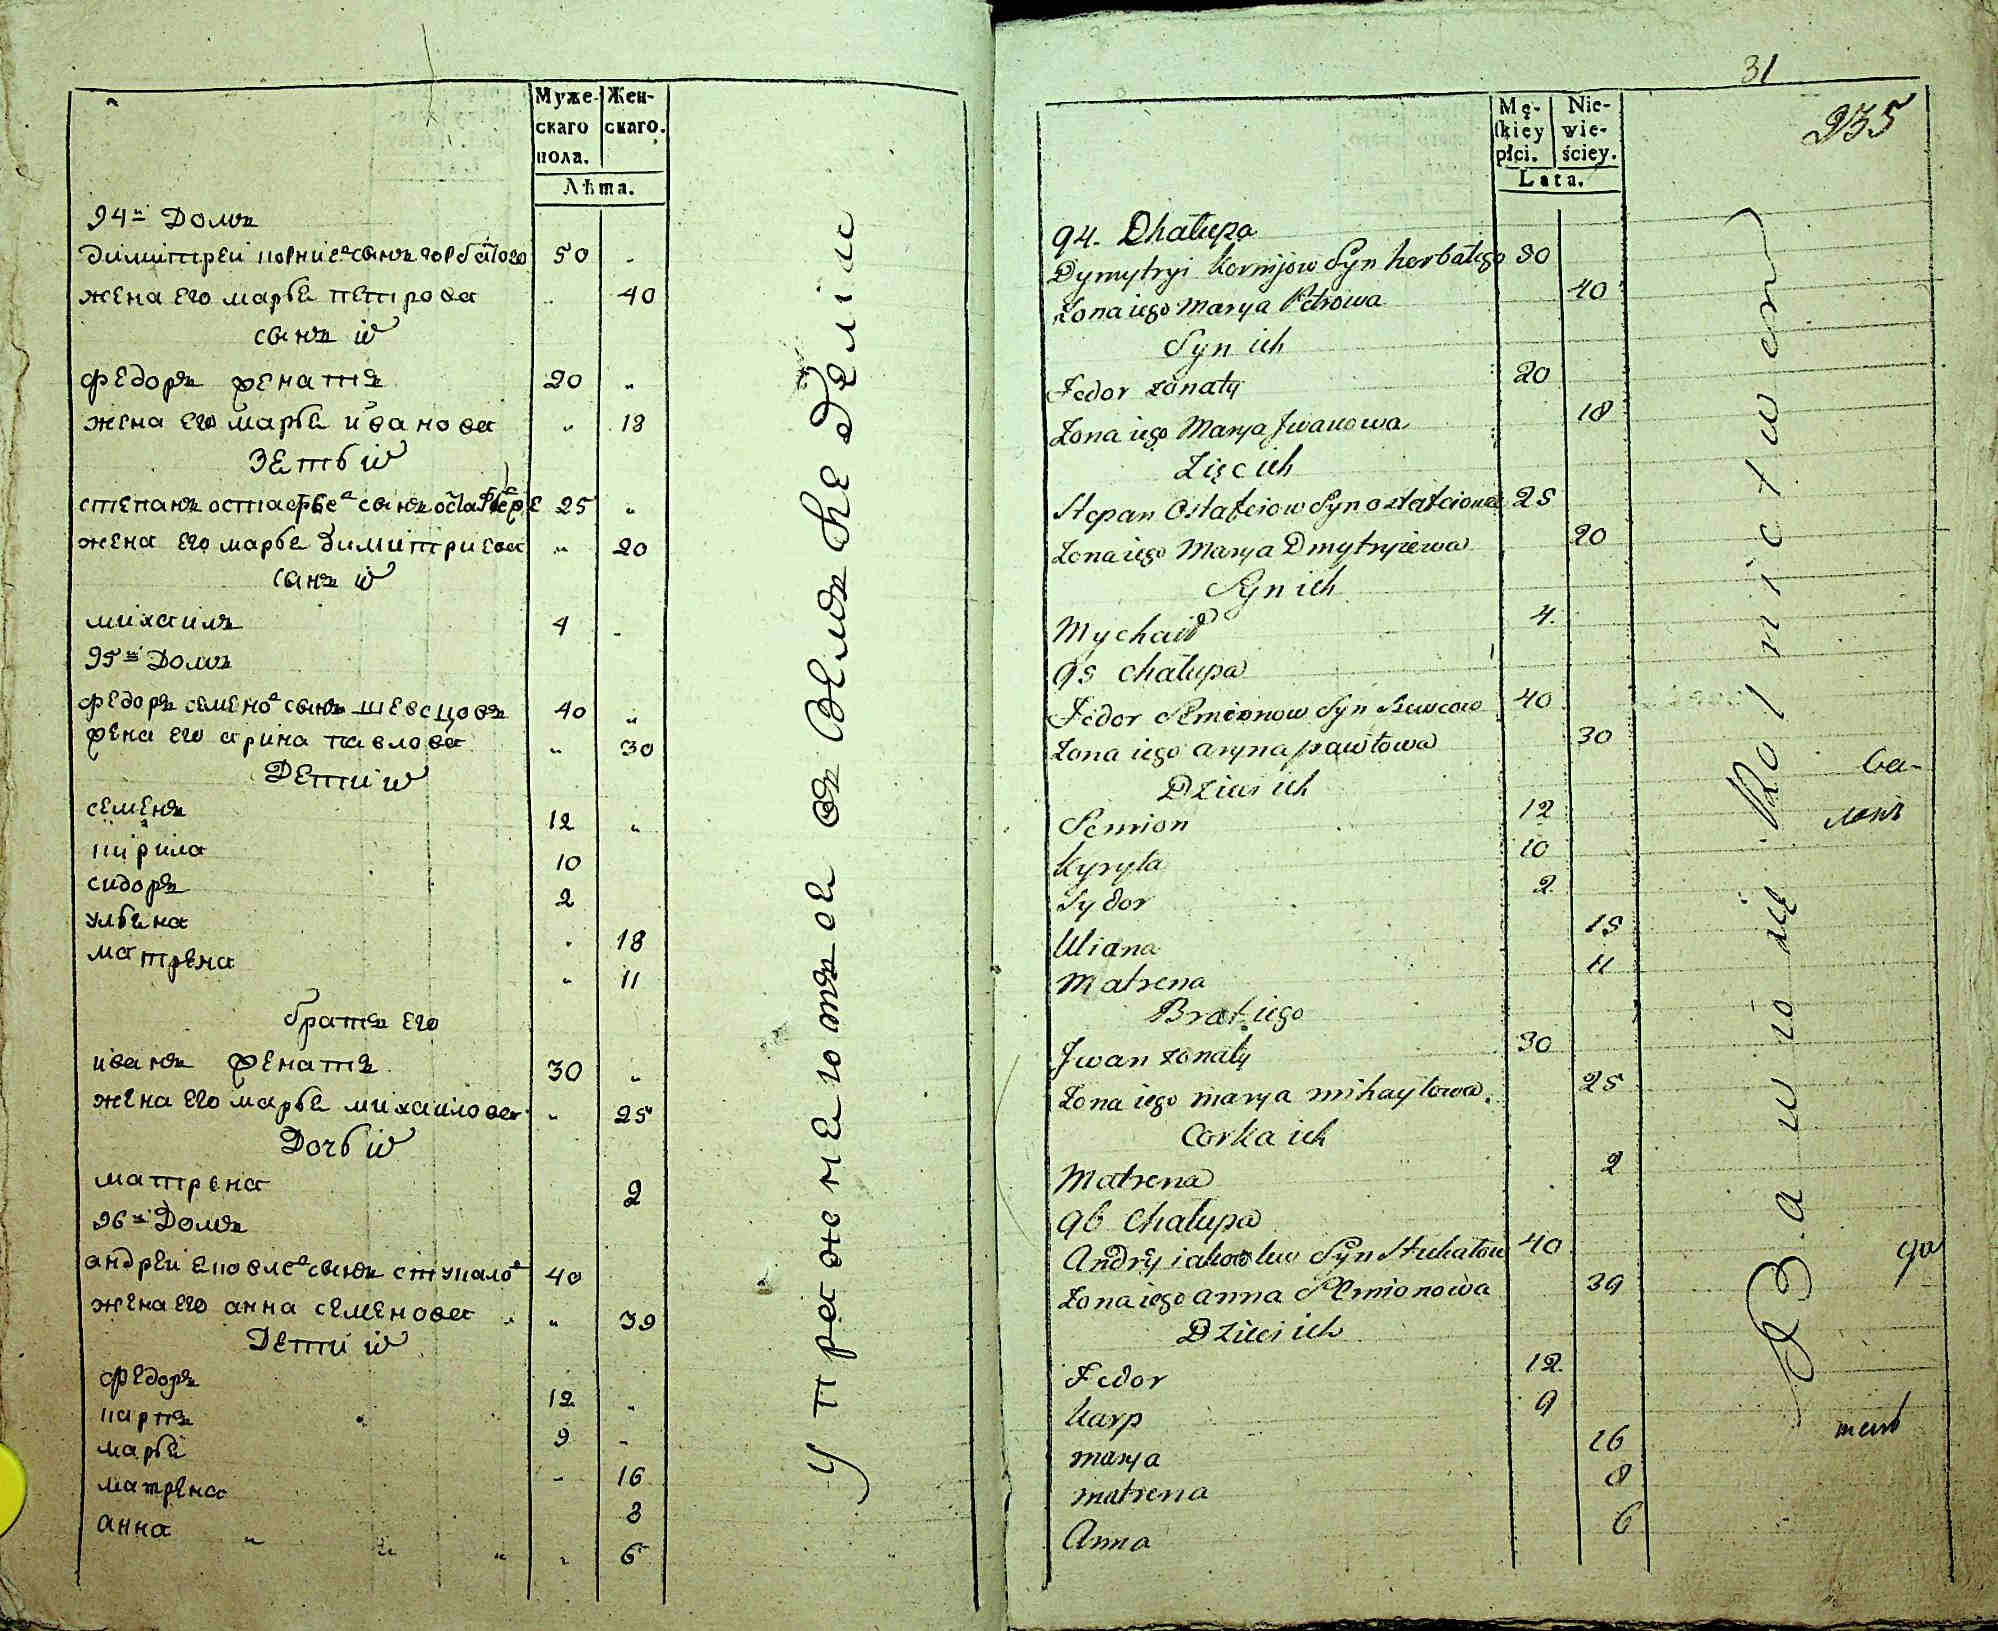 Муже- Жен-
скаго скаго.
пола.
Лѣта.
94й Домъ
димитреи корние в сынъ горбатого 50 „
жена его марья петрова „ 40
сынъ их
федоръ женатъ 20 „
жена его марья иванова „ 18
зеть их
степанъ остафье в сынъ 25 „
жена его марья димитриева „ 20
сынъ их
михаилъ 4 „
95й Домъ
федоръ семено в сынъ шевцовъ 40 „
жена его арина павлова „ 30
Дети их
семенъ 12 „
кирила 10
сидоръ 2
ульяна „ 18
матрена „ 11
братъ его
иванъ женатъ 30 „
жена его марья михаилова „ 25
Дочь их
матрена 2
96й Домъ
андреи яковле в сынъ стукало в 40
жена его анна семенова „ 39
Дети их
федоръ 12 „
карпъ 9 „
марья „ 16
матрена 8
анна „ „ „ „ 6
упражнеютъца въ земледелие
31
235
Mę- Nie-
ſkiey wie-
płci. ściey.
Lata.
94. Chałupa
Dymytryi Kornijow Syn horbatego 50
Żona iego Marya Petrowa 40
Syn ich
Fedor żonaty 20
Żona iego Marya Jwanowa 18
Zięc ich
Stepan Ostafeiow Syn 25
Żona iego Marya Dmytryiewa 20
Syn ich
Mychaił 4.
95 chałupa
Fedor Semionow Syn Szewcow 40
Żona iego aryna pawłowa 30
Dzieci ich
Semion 12
Kyryła 10
Sydor 2
Uliana 18
Matrena 11
Brat iego
Jwan żonaty 30
Żona iego marya mihayłowa. 25
Corka ich
Matrena 2
96 Chałupa
Andry iakowlew Syn Stukałow 40
Żona iego anna Semionowa 39
Dzieci ich
Fedor 12
Karp 9
marya 16
matrena 8
Anna 6
Bawio się Rolnictwem